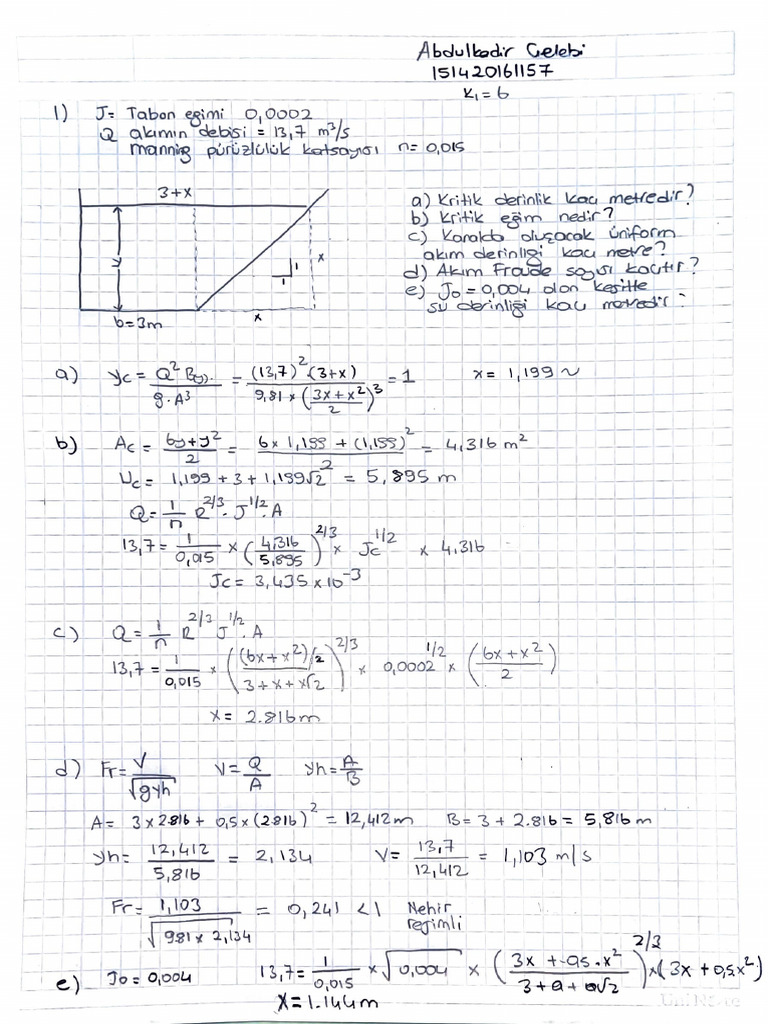 Abdulkadir Çelebi
151420161157
K₁=6
1) J= Taban eğimi 0,0002
Q akımın debisi = 13,7 m³/s
manning pürüzlülük katsayısı n=0,015
3+x
y
x
1
1
b=3m
x
a) Kritik derinlik kaç metredir?
b) Kritik eğim nedir?
c) Kanalda oluşacak üniform
akım derinliği kaç metre?
d) Akım Froude sayısı kaçtır?
e) J₀=0,004 olan kesitte
su derinliği kaç metredir?
a) yc = Q² B(y) / g.A³ = (13,7)².(3+x) / 9,81 x ((3x+x²)/2)³ = 1 x= 1,199 ~
b) Ac = (6y+y²)/2 = (6x1,199 + (1,199)²)/2 = 4,316 m²
Uc = 1,199 + 3 + 1,199√2 = 5,895 m
Q = 1/n R^2/3 . J^1/2 . A
13,7 = 1/0,015 x (4,316/5,895)^2/3 x Jc^1/2 x 4,316
Jc = 3,435 x 10⁻³
c) Q = 1/n R^2/3 J^1/2 . A
13,7 = 1/0,015 x (((6x+x²)/2)/(3+x+x√2))^2/3 x 0,0002^1/2 x ((6x+x²)/2)
x= 2.816m
d) Fr = V/√(gyh) V = Q/A yh = A/B
A = 3x2.816 + 0,5x(2.816)² = 12,412m B= 3 + 2.816 = 5,816 m
yh = 12,412/5,816 = 2,134 V = 13,7/12,412 = 1,103 m/s
Fr = 1,103/√(981 x 2,134) = 0,241 <1 Nehir
rejimli
e) J₀=0,004 13,7 = 1/0,015 x √0,004 x ((3x + 0,5.x²)/(3+a+a√2))^2/3 x (3x+0,5x²)
x=1.144m